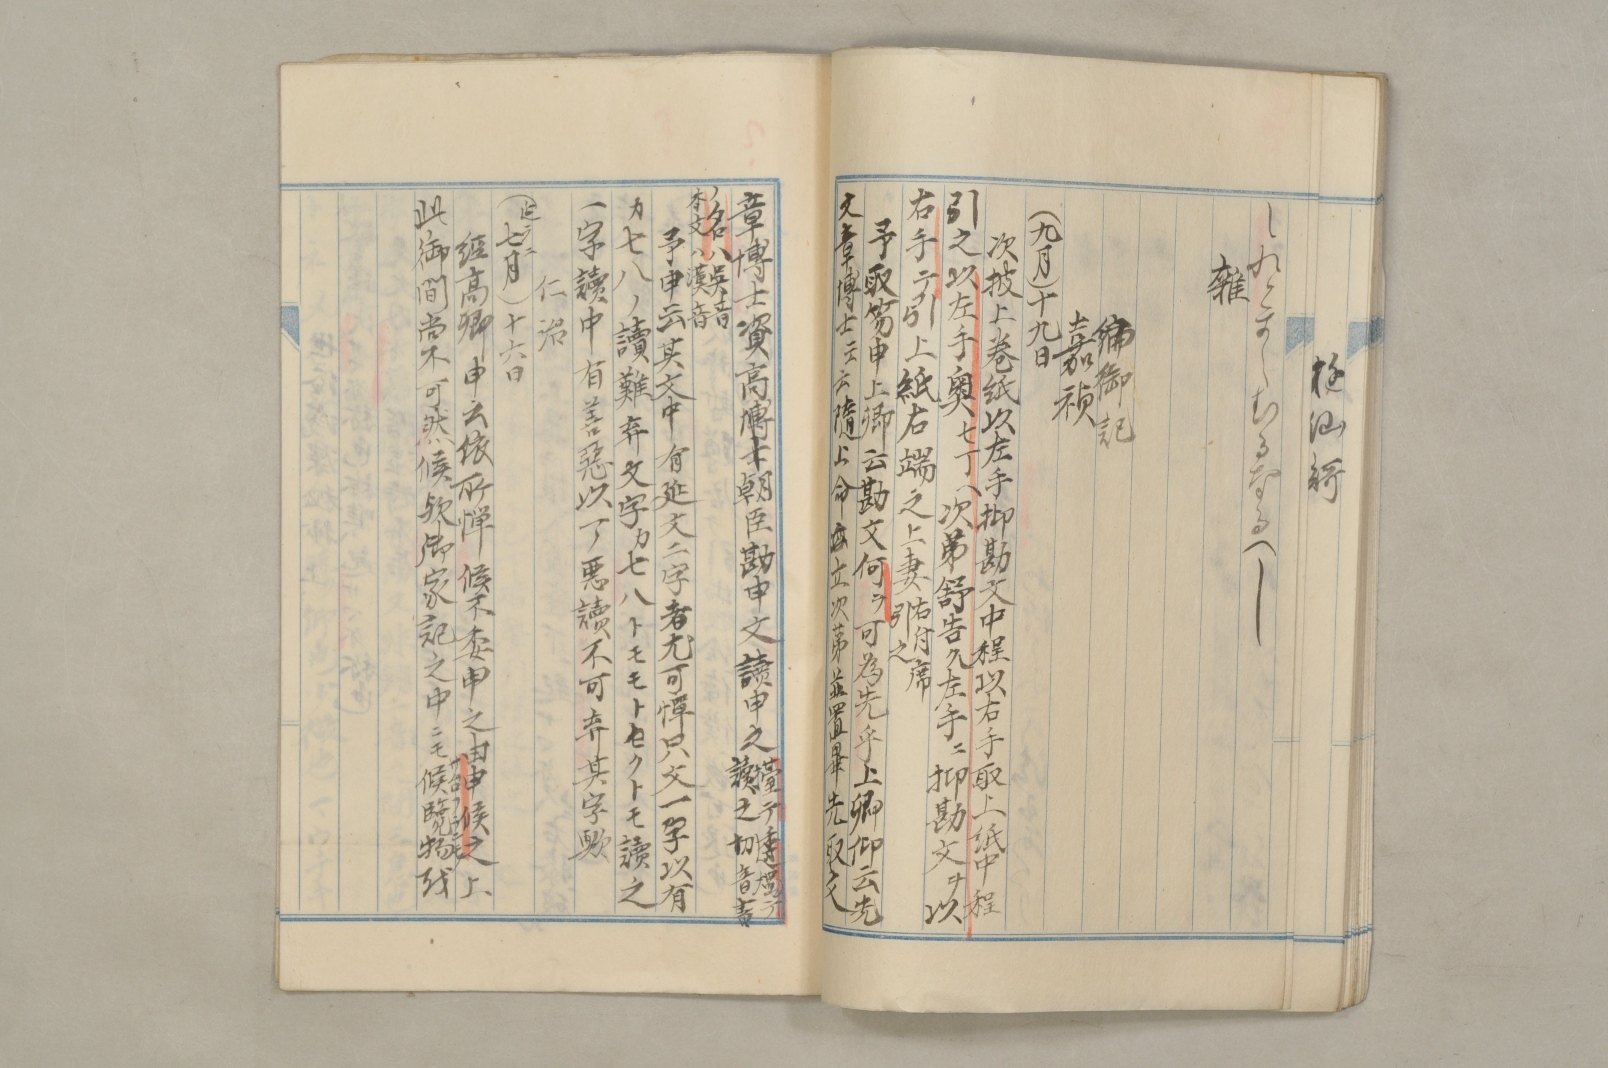 雜
編御記
嘉禎
(九月)十九日
次披上卷紙以左手抑勘文中程以右手取上紙中程
引之以左手奥七丁ヘ次第舒告久左手ニ抑勘文ヲ以
右手テ引上紙右端之上妻右付席引之
予取笏申上卿云勘文何ヲ可為先乎上卿仰云先
文章博士云々隨上命立次第並置畢先取文
章博士資高博士朝臣勘申文讀申之
讀之切音書
名ハ吳音
本文ハ漢音
予申云其文中有延文二字者尤可憚只文一字以有
カ七八ノ讀難弃文字カ七八トモモトセクトモ讀之
一字讀中有善惡以了惡讀不可弃其字歟
仁治
(七月)十六日
經高卿申云依所憚候不委申之由申候之上
此御間尚不可然候歟御家記之中ニモ候覽物哉